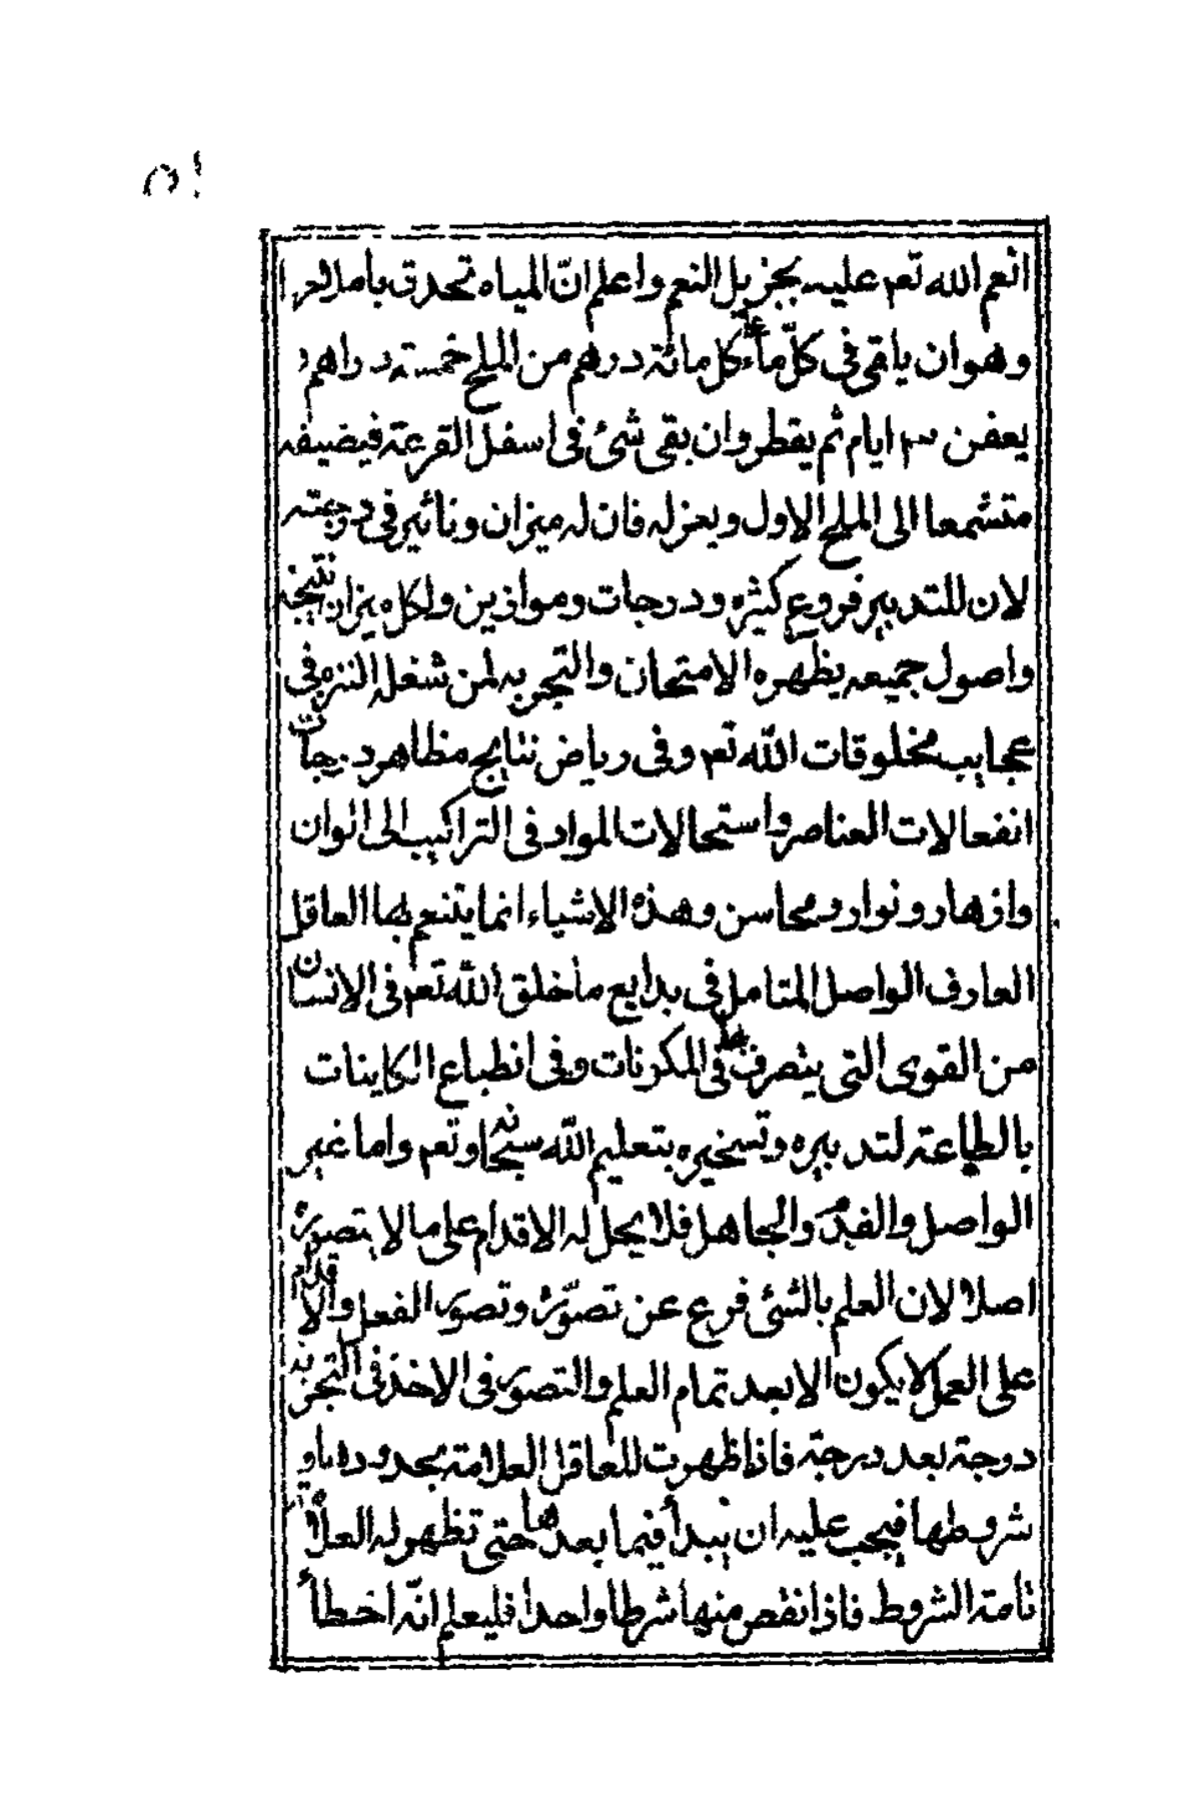 انعم الله تعم عليه بجزيل النعم واعلم انّ المياه تحدق باملاحها
وهو ان ياقى فى كلّ ماء كل مائة درهم من الملح خمسة دراهم و
يعفن ٣٠ ايام ثم يقطر وان بقى شئ فى اسفل القرعة فيضيفه
متشمعا الى الملح الاول ويعزله فان له ميزان وتاثير فى درجته
لان للتدبير فروع كثيره ودرجات وموازين ولكل ميزان نتيجة
واصول جميعه يظهره الامتحان والتجربه لمن شغله النزه فى
عجايب مخلوقات الله تعم وفى رياض نتايج مظاهر درجات
انفعالات العناصر واستحالات المواد فى التراكيب الى الوان
وازهار ونوار ومحاسن وهذه الاشياء انما يتنعم بها العاقل
العارف الواصل المتامل فى بدايع ما خلق الله تعم فى الانسان
من القوى التى يتصرف بها فى المكونات وفى انطباع الكاينات
بالطاعة لتدبيره وتسخيره بتعليم الله سبحانه وتعم واما غير
الواصل والفدم والجاهل فلا يحل له الاقدام على ما لا يتصوره
اصلا لان العلم بالشئ فرع عن تصوّره وتصور الفعل والاقدام
على العمل لا يكون الا بعد تمام العلم والتصور فى الاخذ فى التجربه
درجة بعد درجة فاذا ظهرت للعاقل العلامة بحدودها و
شروطها فيجب عليه ان يبدأ فيما بعدها حتى تظهر له العلامة
تامة الشروط فاذا نقص منها شرطا واحدا فليعلم انّه اخطأ